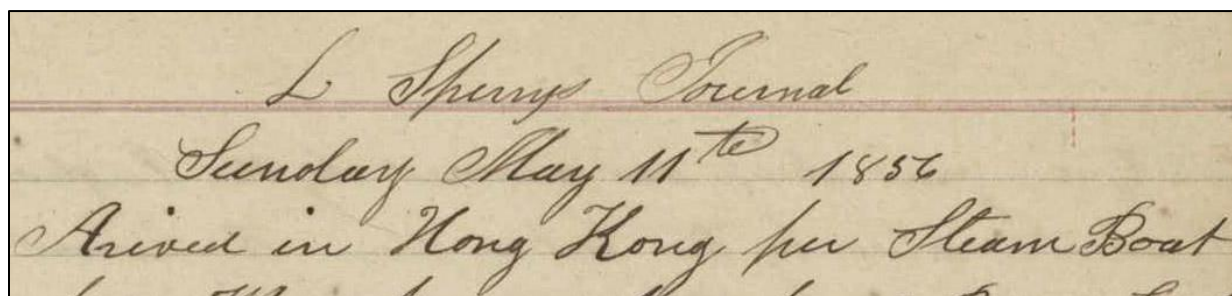 L Sperrys Journal
Sunday May 11th 1856
Arived in Hong Kong per Steam Boat